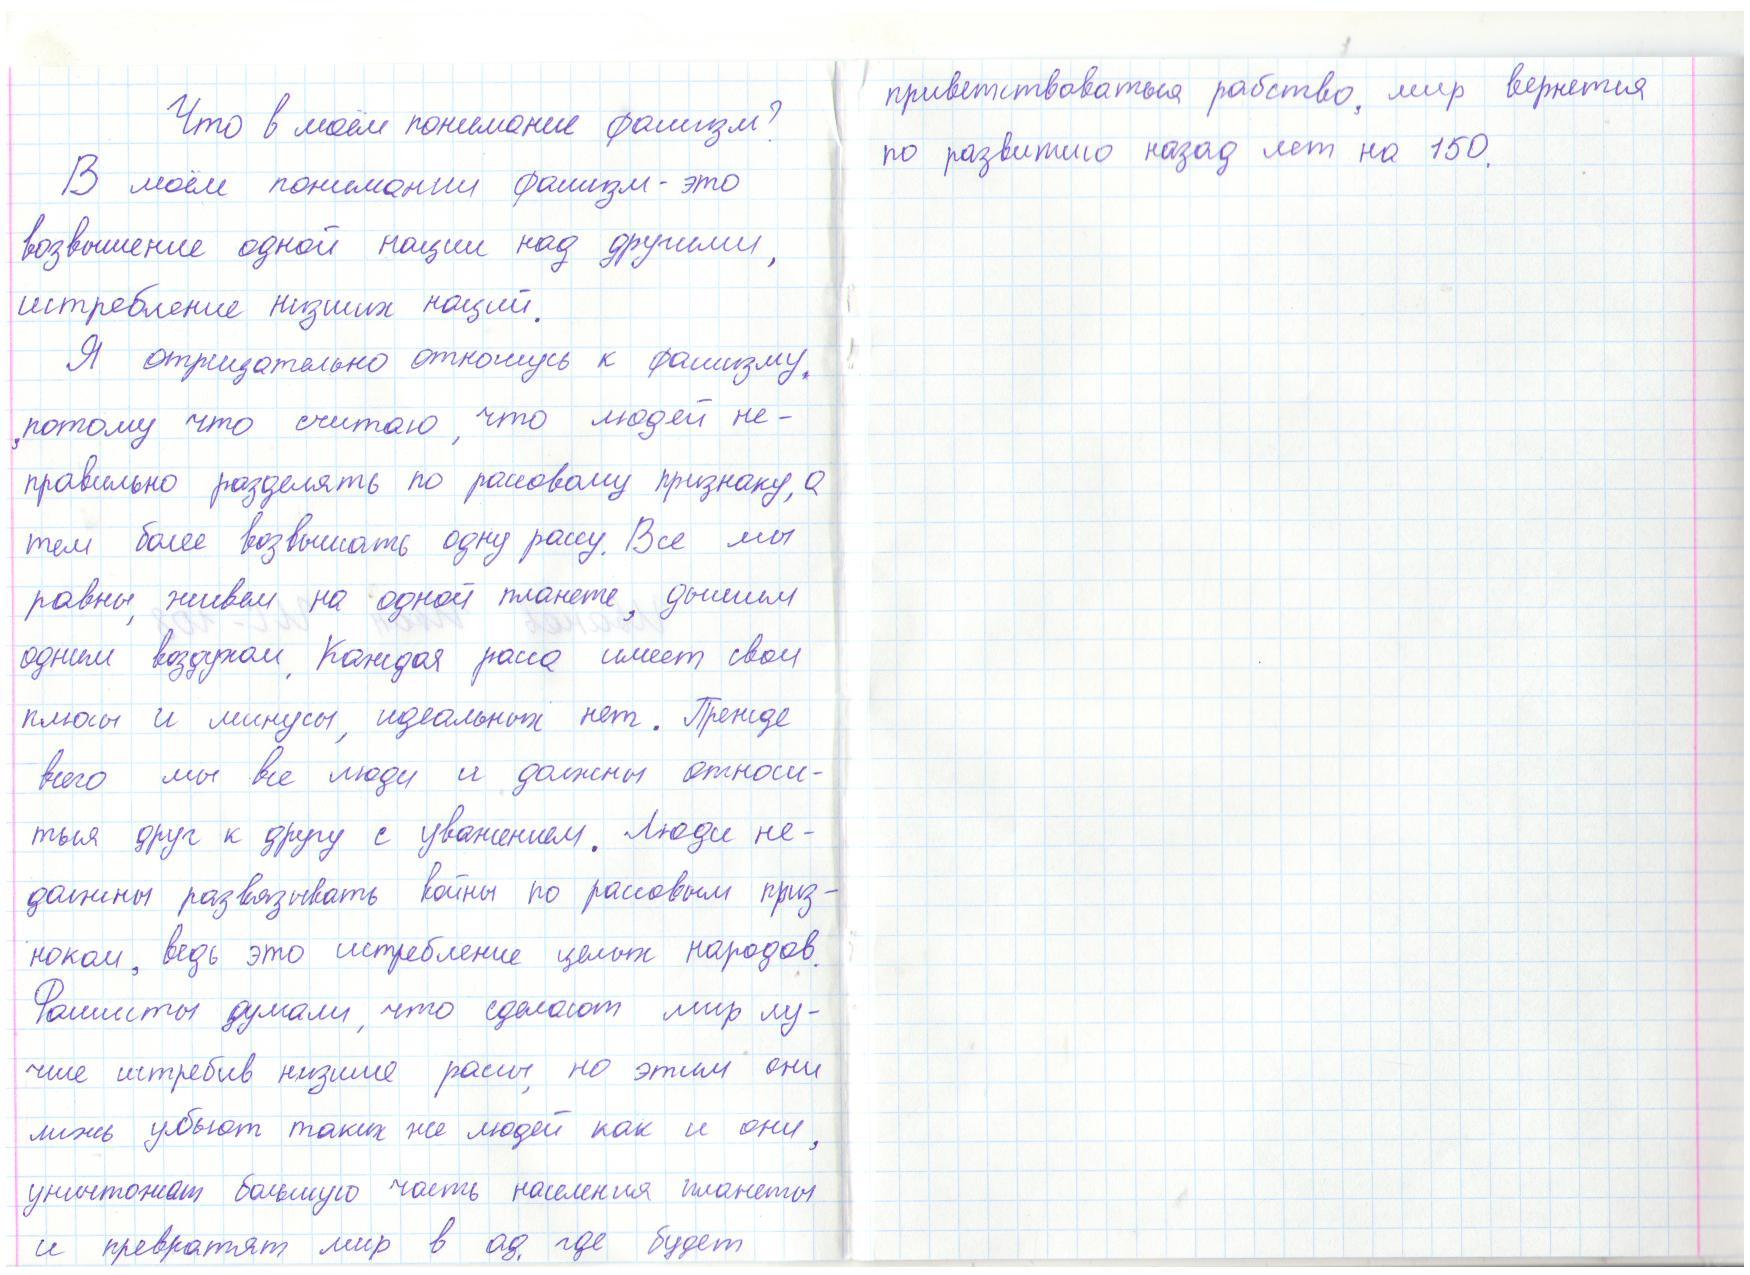 Что в моём понимание фашизм?
В моём понимании фашизм - это
возвышение одной нации над другими,
истребление низших наций.
Я отрицательно отношусь к фашизму,
,потому что считаю, что людей не-
правильно разделять по рассовому признаку, а
тем более возвышать одну рассу. Все мы
равны, живем на одной планете, дышим
одним воздухом. Каждая расса имеет свои
плюсы и минусы, идеальных нет. Прежде
всего мы все люди и должны относи-
ться друг к другу с уважением. Люди не-
должны развязывать войны по рассовым приз-
нокам, ведь это истребление целых народов.
Фашисты думали, что сделают мир лу-
чше истребив низшие рассы, но этим они
лижь убьют таких же людей как и они,
уничтожат большую часть населения планеты
и превратят мир в ад, где будет
приветствоваться рабство, мир вернется
по развитию назад лет на 150.